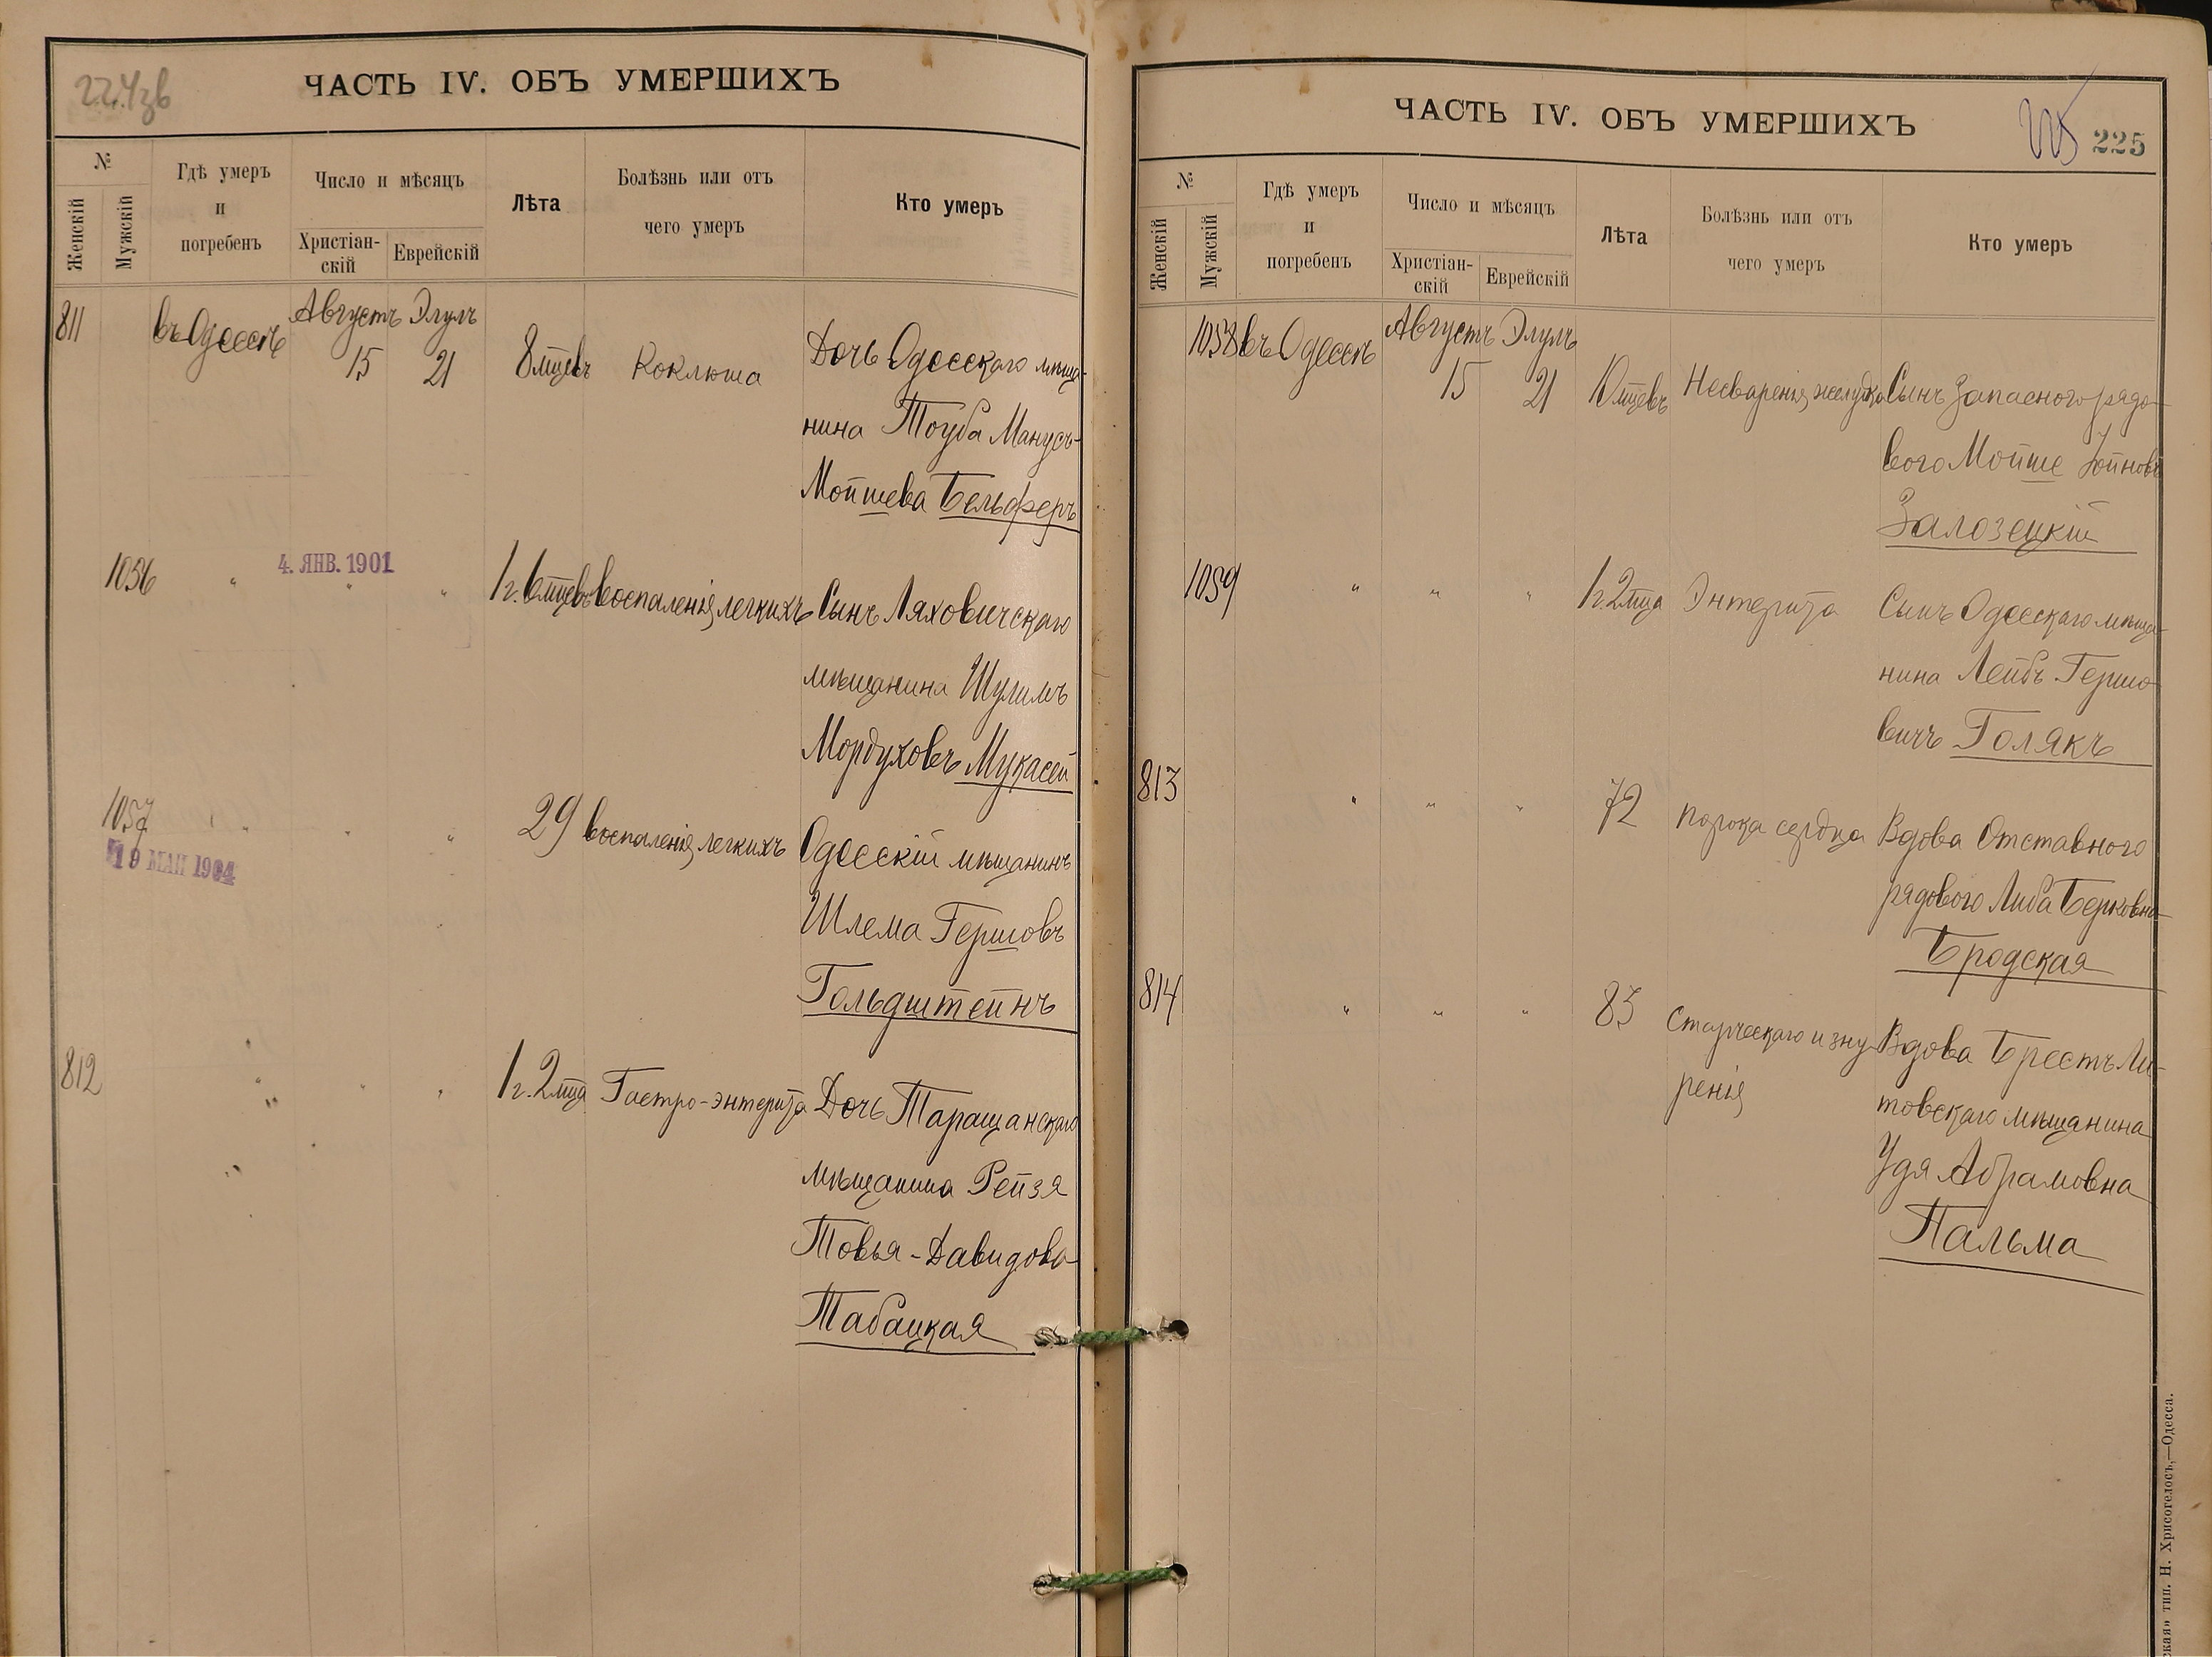 224зв
ЧАСТЬ IV. ОБЪ УМЕРШИХЪ
№
Женскій
Мужскій
Гдѣ умеръ
и
погребенъ
Число и мѣсяцъ
Христіан-
скій
Еврейскій
Лѣта
Болѣзнь или отъ
чего умеръ
Кто умеръ
811 въ Одессѣ Августъ Элулъ
15 21 8 мцевъ Коклюша Дочь Одесскаго мѣща-
нина Тоуба Манусъ-
Мойшева Бельферъ
4. ЯНВ. 1901
1056 " " " 1 г. 6 мцевъ Воспаленія легкихъ Сынъ Ляховичскаго
мѣщанина Шулимъ
Мордуховъ Мукасей
1057 " " " 29 Воспаленія легкихъ Одесскій мѣщанинъ
19 МАЙ 1904
Шлема Гершовъ
Гольдштейнъ
812 " " " 1 г. 2 мца Гастро-энтерита Дочь Таращанскаго
мѣщанина Рейзя
Товья-Давидова
Табацкая
ЧАСТЬ IV. ОБЪ УМЕРШИХЪ
225 225
№
Женскій
Мужскій
Гдѣ умеръ
и
погребенъ
Число и мѣсяцъ
Христіан-
скій
Еврейскій
Лѣта
Болѣзнь или отъ
чего умеръ
Кто умеръ
1058 въ Одессѣ Августъ Элулъ
15 21 10 мцевъ Несваренія желудка Сынъ Запасного рядо-
вого Мойше
Залозецкій
1059 " " " 1 г. 2 мца Энтерита Сынъ Одесскаго мѣща-
нина Лейбъ Гершо-
вичъ Голякъ
813 " " " 72 порока сердца Вдова Отставного
рядового Либа Берковна
Бродская
814 " " " 83 Старческаго изну- Вдова Брестъ-Ли-
ренія товскаго мѣщанина
Удя Абрамовна
Пальма
ская» тип. Н. Хрисогелосъ,—Одесса.